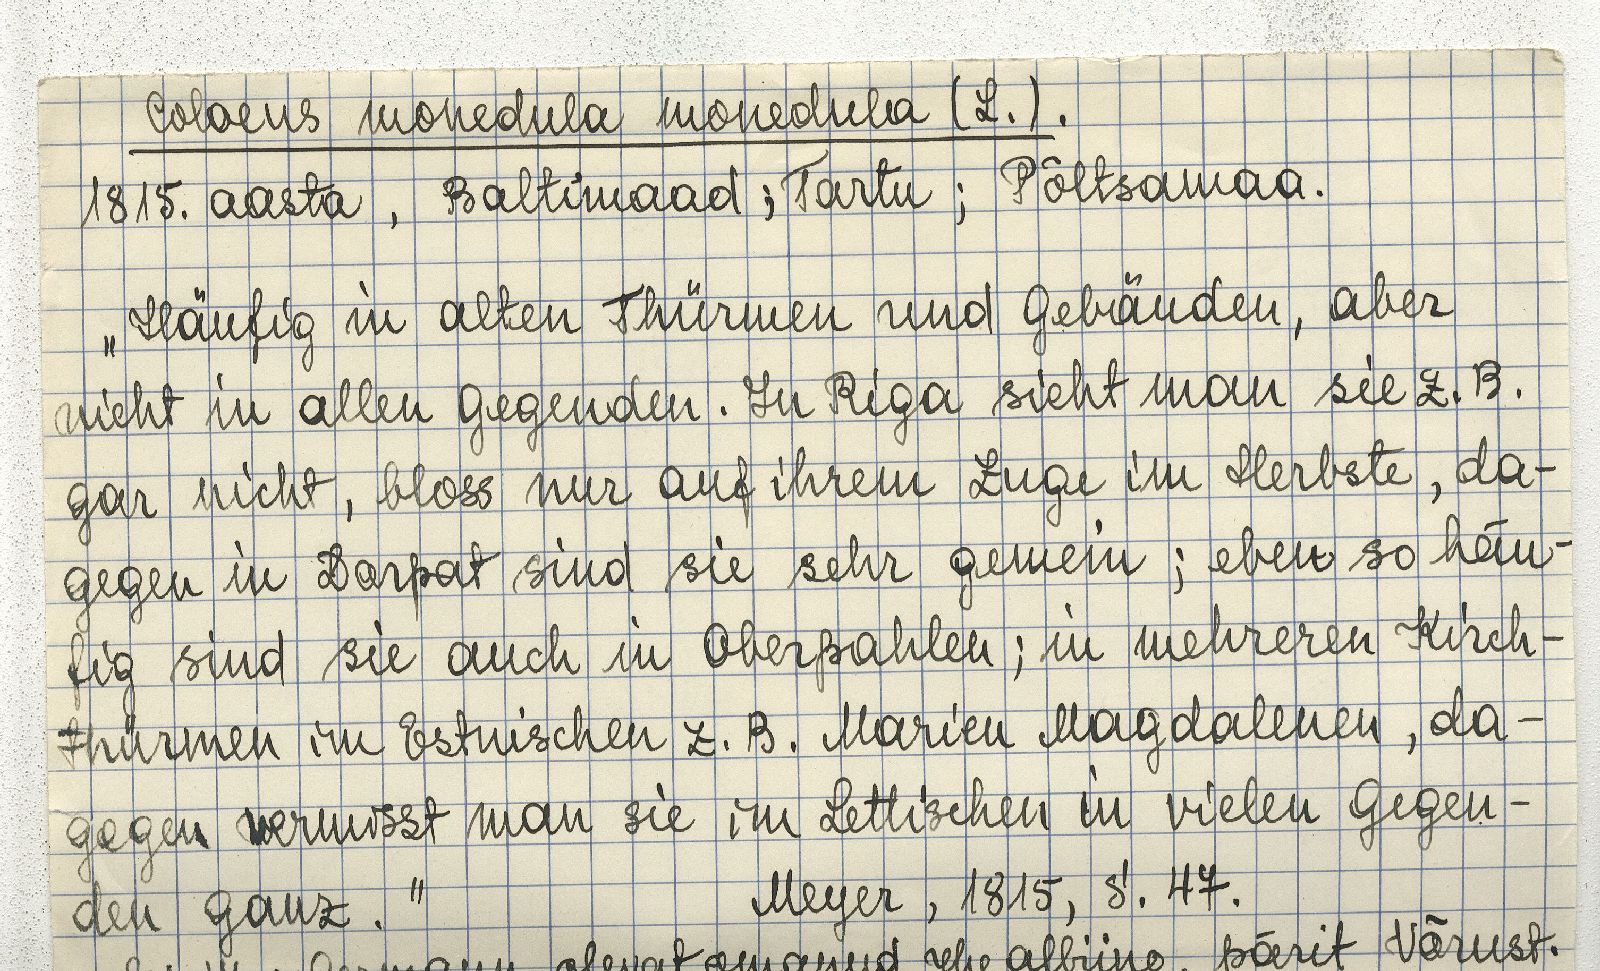 Coloeus monedula monedula (L.).
1815. aasta, Baltimaad; Tartu; Põltsamaa.
„Häufig in alten Thürmen und Gebäuden, aber
nicht in allen Gegenden. In Riga sieht man sie z. B.
gar nicht, bloss nur auf ihrem Zuge im Herbste, da-
gegen in Dorpat sind sie sehr gemein; eben so häu-
fig sind sie auch in Oberpahlen; in mehreren Kirch-
thürmen im Estnischen z. B. Marien Magdalenen, da-
gegen vermisst man sie im Lettischen in vielen Gegen-
den ganz." Meyer, 1815, S. 47.
pärit Võrust.